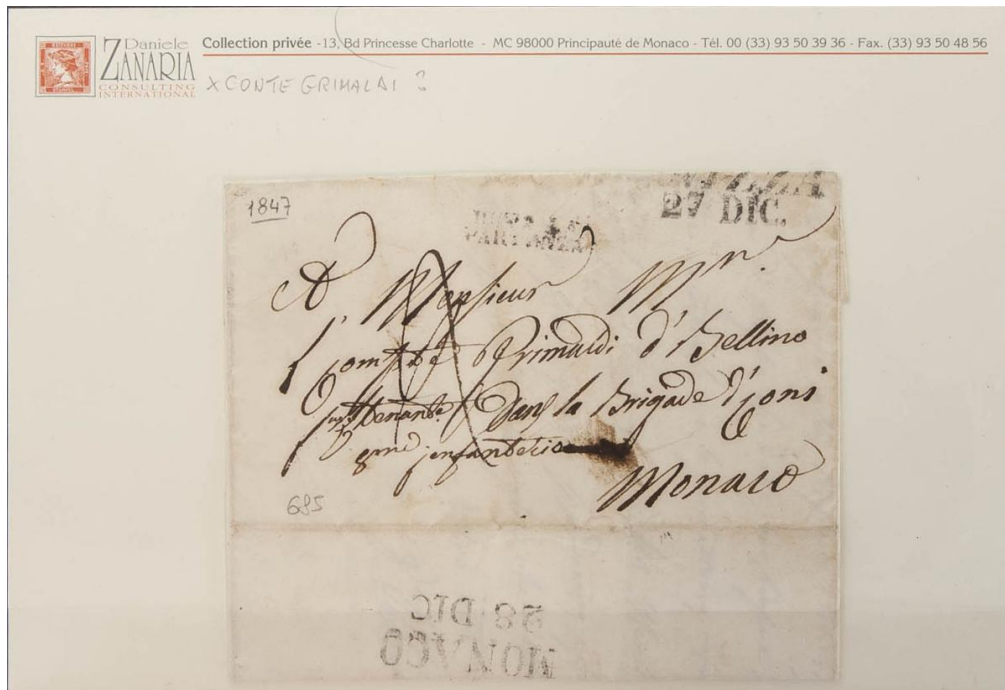 Daniele
ZANARIA
CONSULTING
INTERNATIONAL
Collection privée - 13, Bd Princesse Charlotte - MC 98000 Principauté de Monaco - Tél. 00 (33) 93 50 39 36 - Fax. (33) 93 50 48 56
x CONTE GRIMALDI ?
1847
NIZZA
27 DIC.
PARTENZA
A Monsieur Mr.
l' Comte Grimaldi d'Bellino
dans la Brigade d'Coni
Monaco
685
28 DIC
MONACO